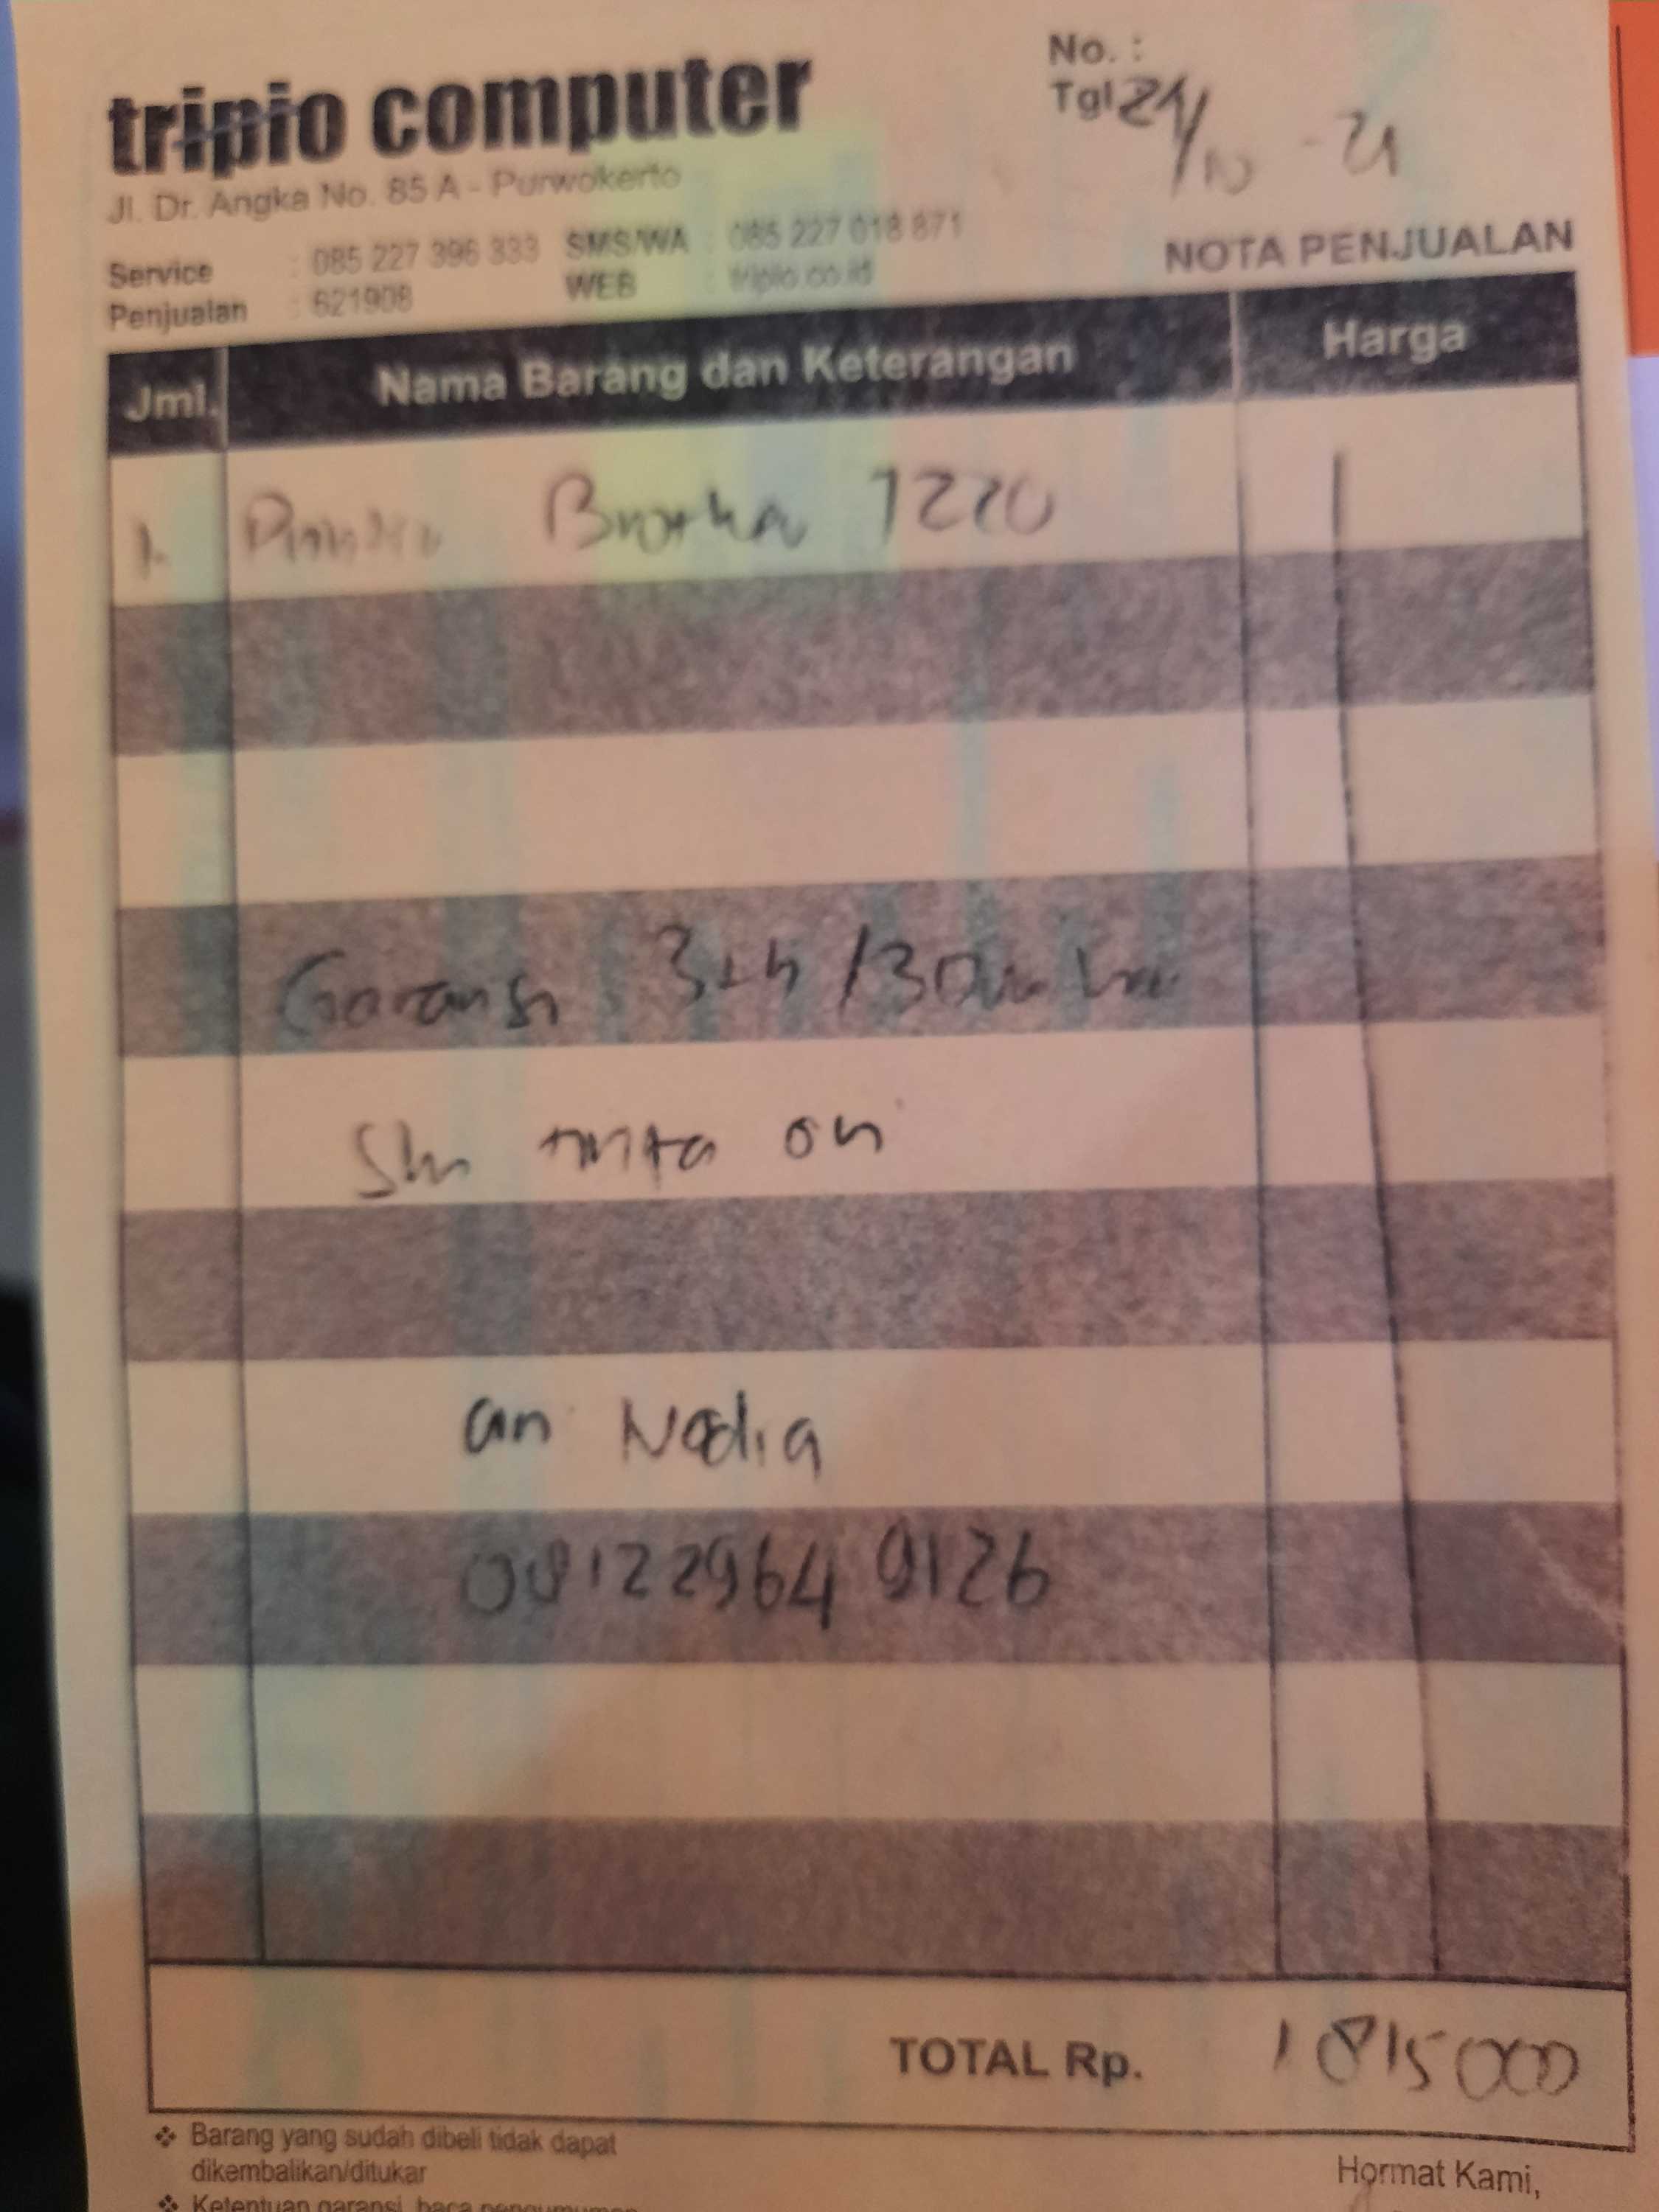 tripio computer
No. :
Tgl 21/10 - 21
Jl. Dr. Angka No. 85 A - Purwokerto
Service : 085 227 396 333 SMS/WA : 085 227 018 871
Penjualan : 621908 WEB : tripio.co.id
NOTA PENJUALAN
Jml. Nama Barang dan Keterangan Harga
1. Printer Brother T220
Garansi : 3th /30
tinta ori
an Nadia
08122964 9126
TOTAL Rp. 1815000
❖ Barang yang sudah dibeli tidak dapat
dikembalikan/ditukar
Hormat Kami,
❖ Ketentuan garansi, baca pengumuman